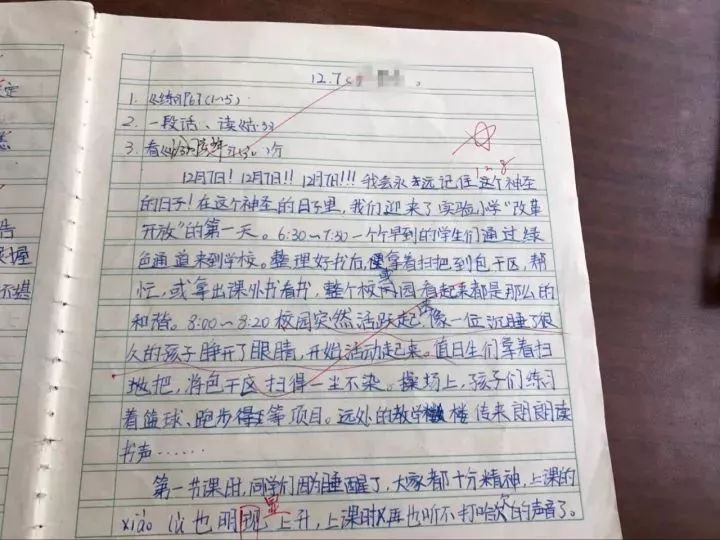 12.7
1. 《练习》P67(1~5)
2. 一段话、读
3. 看
12月7日！12月7日!！12月7日!!！我会永远记住这个神圣
的日子！在这个神圣的日子里，我们迎来了实验小学“改革
开放”的第一天。6:30~7:50一个个早到的学生们通过绿
色通道来到学校。整理好书后，便拿着扫把到包干区，帮
忙，或拿出课外书看书，整个校园看起来都是那么的
和谐。8:00~8:20校园突然活跃起 像一位沉睡了很
久的孩子睁开了眼睛，开始活动起来。值日生们拿着扫
地把，将包干区扫得一尘不染。操场上，孩子们练习
着篮球、跑步等项目。远处的教学楼传来朗朗读
书声……
第一节课时，同学们因为睡醒了，大家都十分精神，上课的
xiào 也明显上升，上课时再也听不打哈欠的声音了。